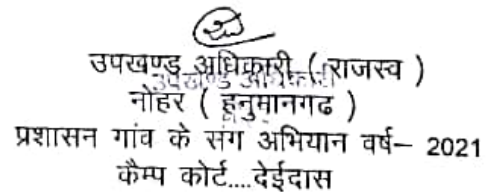 उपखण्ड अधिकारी ( राजस्व )
उपखण्ड अधिकारी
नोहर ( हनुमानगढ )
प्रशासन गांव के संग अभियान वर्ष– 2021
कैम्प कोर्ट....देईदास